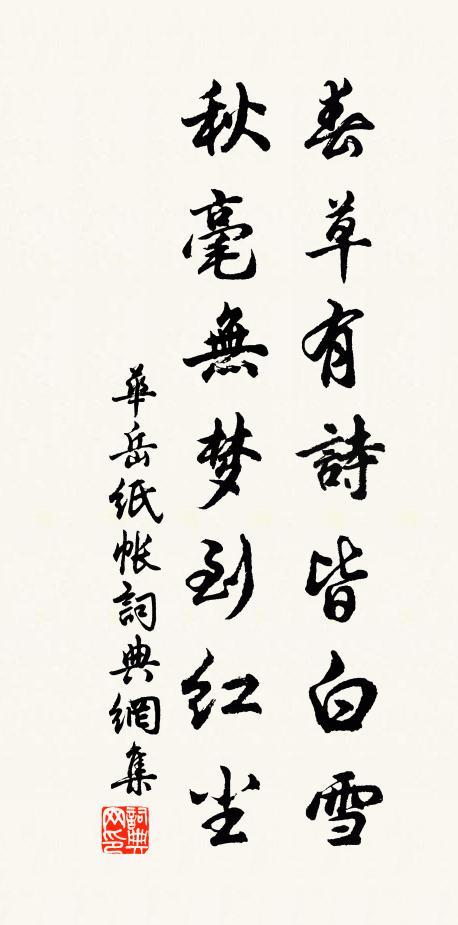 春草有詩皆白雪
秋毫無梦到红尘
華岳纸帐詞典網集
詞典网印